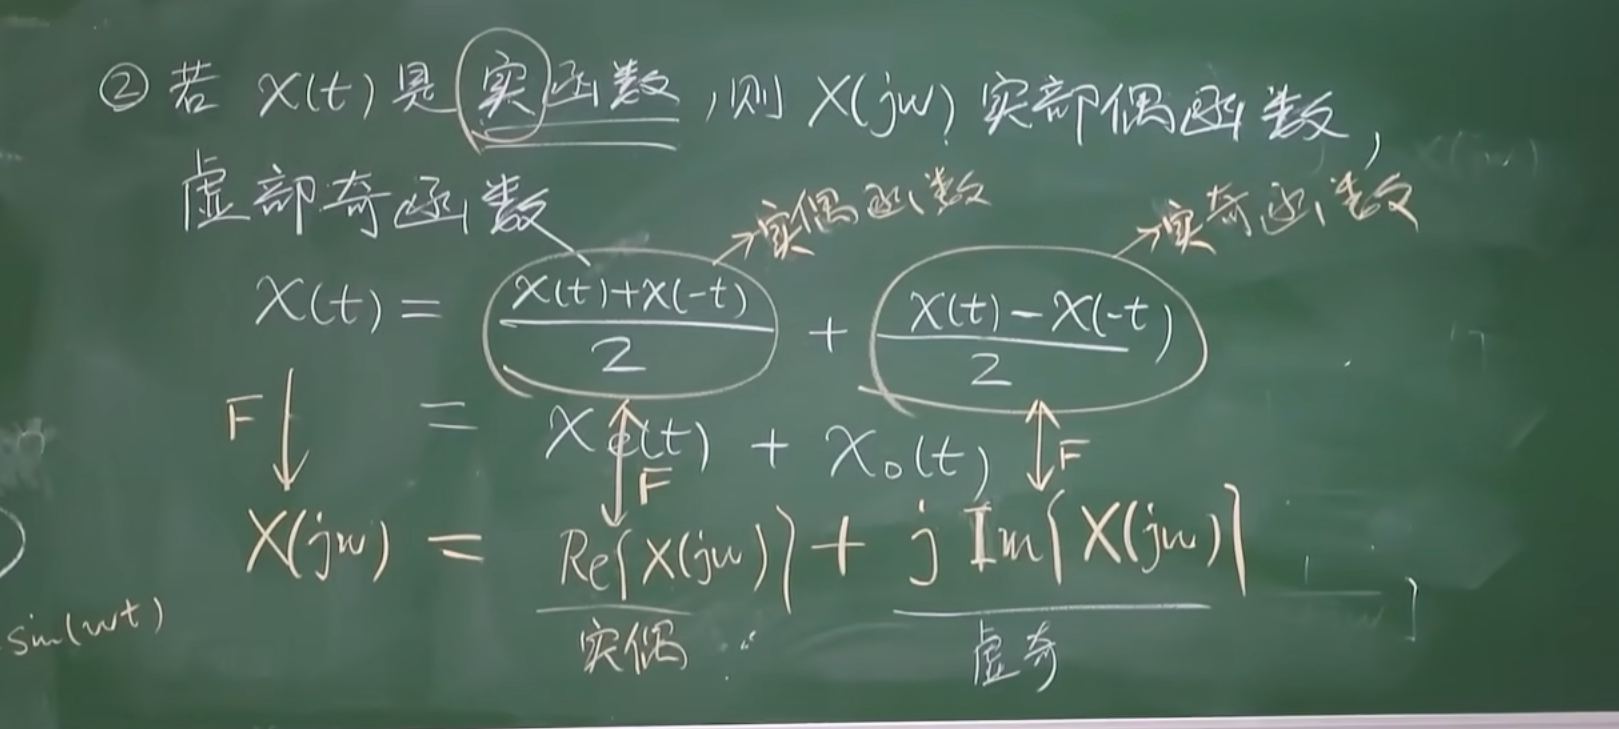 ② 若 X(t) 是实函数，则 X(jw) 实部偶函数，
虚部奇函数
→实偶函数
→实奇函数
X(t) = (X(t)+X(-t))/2 + (X(t)-X(-t))/2
= Xe(t) + Xo(t)
F
F
F
X(jw) = Re{X(jw)} + j Im{X(jw)}
实偶
虚奇
sin(wt)